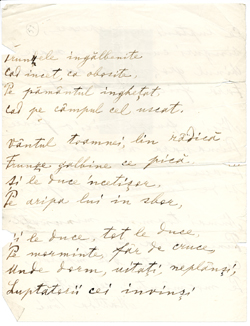 Frunzele îngălbenite
Cad încet, ca obosite.
Pe pământul înghețat.
Cad pe câmpul cel uscat.
Vântul toamnei, lin rădică
Frunze galbine ce pică.
Și le duce 'ncetișor,
Pe aripa lui în sbor,
Și le duce, tot le duce,
Pe morminte, făr de cruce
Unde dorm, uitați, neplânși,
Luptătorii cei învinși